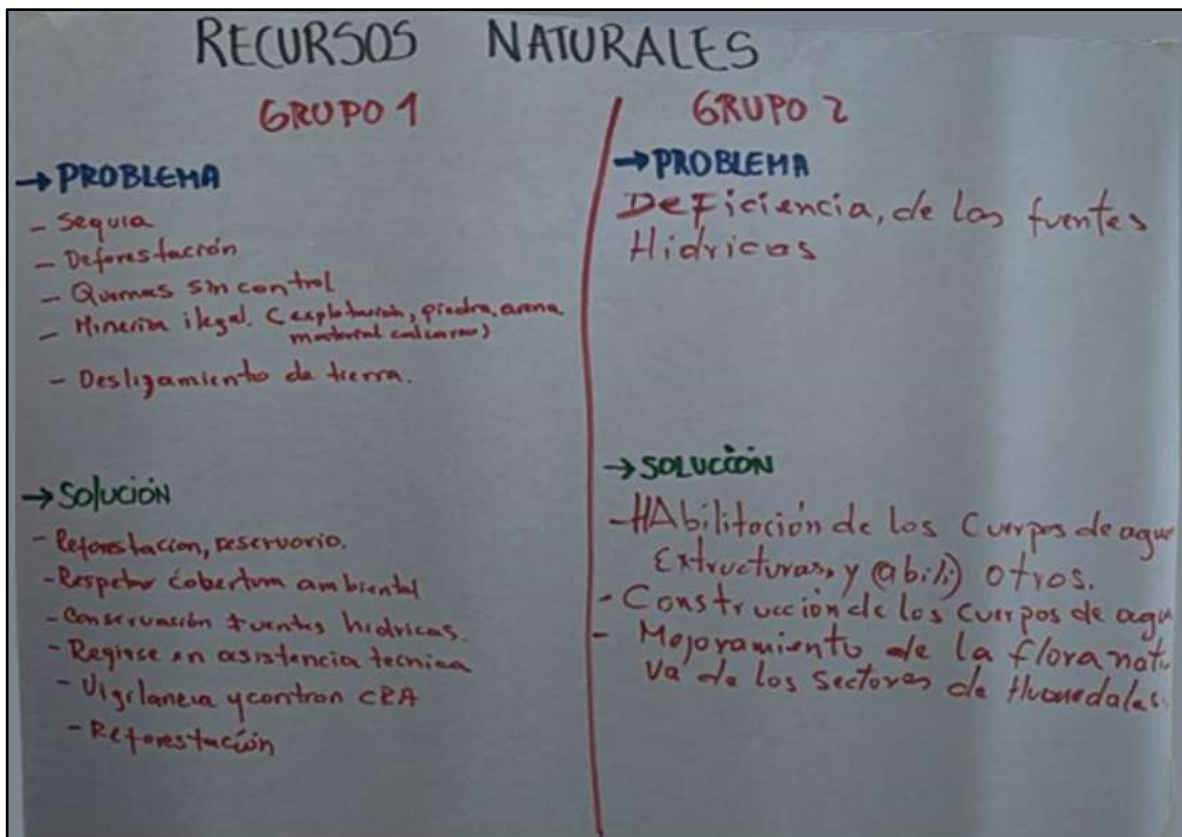 RECURSOS NATURALES
GRUPO 1
→ PROBLEMA
- Sequia
- Deforestación
- Quemas sin control
- Mineria ilegal. (explotación, piedra, arena
material calcareo)
- Deslizamiento de tierra.
→ Solución
- Reforestacion, reservorio.
- Respetar cobertura ambiental
- Conservación fuentes hidricas.
- Regirse en asistencia tecnica
- Vigilancia y contron CRA
- Reforestación
GRUPO 2
→ PROBLEMA
Deficiencia, de las fuentes
Hidricas
→ SOLUCCIÓN
- HAbilitación de los Cuerpos de agua
Extructuras, y (abili) otros.
- Construcción de los cuerpos de agua
- Mejoramiento de la flora nati
va de los Sectores de Humedales.